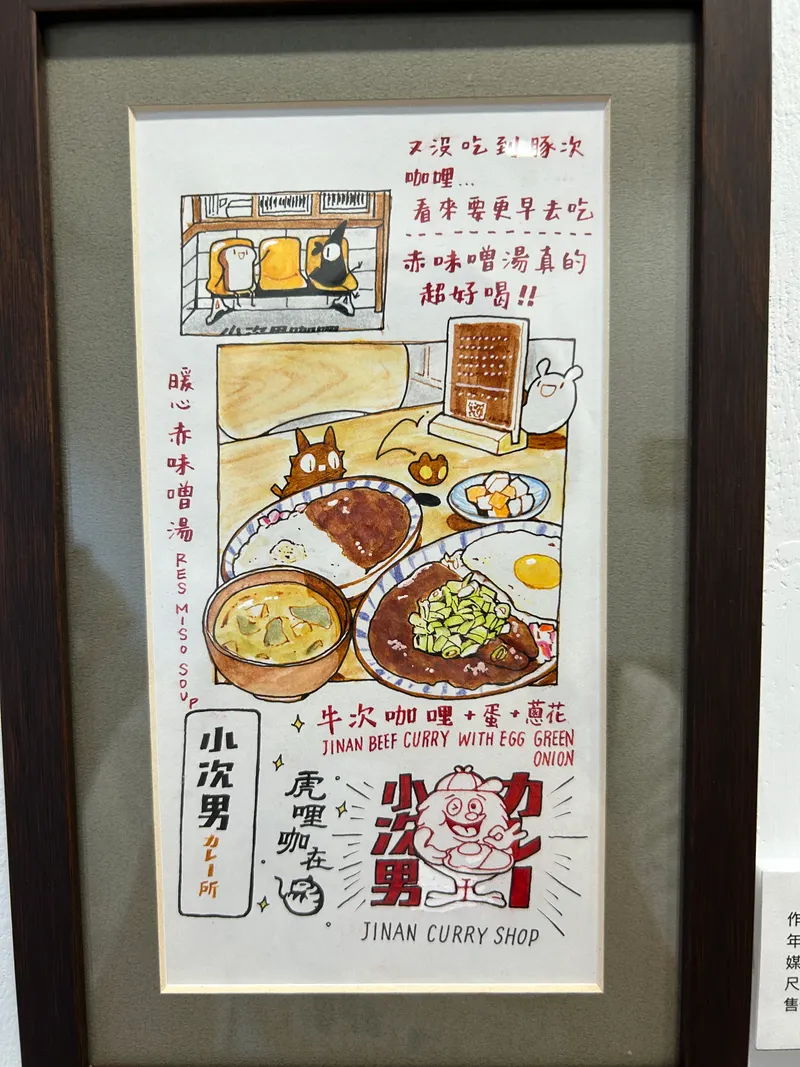 又沒吃到豚次
咖哩...
看來要更早去吃
赤味噌湯真的
超好喝!!
小次男咖哩
暖心赤味噌湯 RES MISO SOUP
牛次咖哩+蛋+蔥花
JINAN BEEF CURRY WITH EGG GREEN
ONION
小次男
カレー所
虎哩咖在
小次男
カレー
JINAN CURRY SHOP
作
年
媒
尺
售